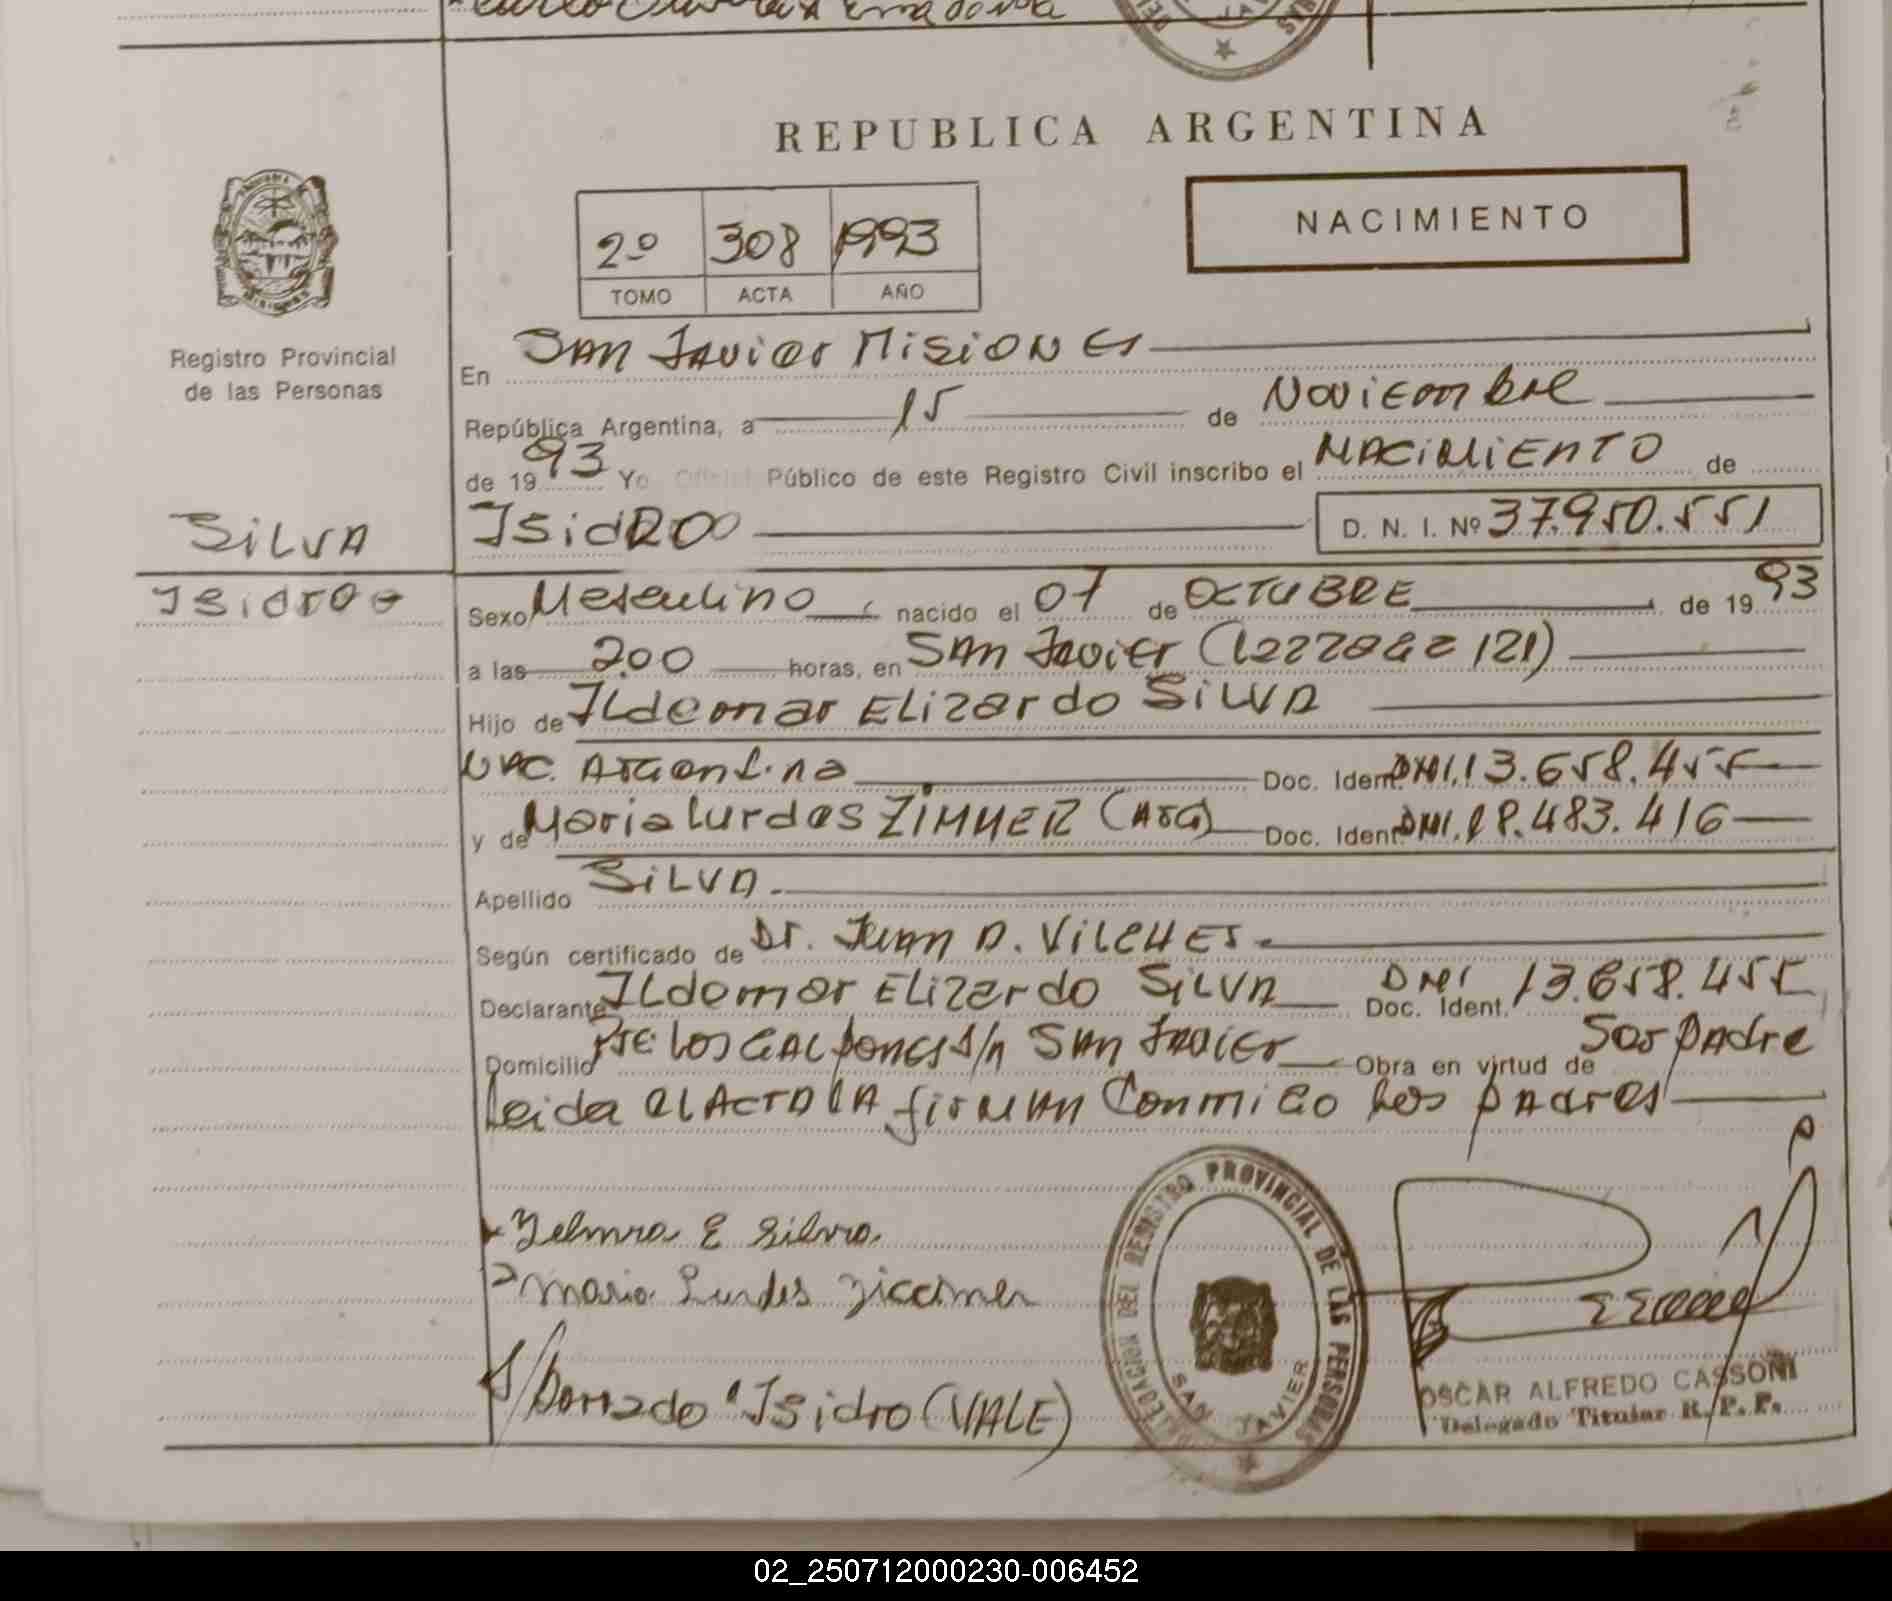 REPUBLICA ARGENTINA
NACIMIENTO
2º 308 1993
TOMO ACTA AÑO
Registro Provincial
de las Personas
En San Javier Misiones
República Argentina, a 15 de Noviembre
de 1993 Yo Oficial Público de este Registro Civil inscribo el NACIMIENTO de
SILVA
Isidro D. N. I. Nº 37.950.551
Isidro
Sexo Masculino nacido el 07 de OCTUBRE de 1993
a las 2.00 horas, en San Javier (Lezzoaga 121)
Hijo de Ildemar Elizardo Silva
Nac. Argentina Doc. Ident. DNI. 13.658.455
y de Maria Lurdes ZIMMER (Arg) Doc. Ident. DNI. 18.483.416
Apellido SILVA.
Según certificado de Dr. Juan D. Vilches.
Declarante Ildemar Elizardo Silva DNI Doc. Ident. 13.658.455
Domicilio Pje Los Galpones s/n San Javier Obra en virtud de Ser padre
Leida el Acta la firman Conmigo Los padres
E Silva
Maria Lurdes
S/ Borrado "Isidro (VALE)
DELEGACION DEL REGISTRO PROVINCIAL DE LAS PERSONAS
SAN JAVIER
OSCAR ALFREDO CASSONI
Delegado Titular R. P. P.
02_250712000230-006452